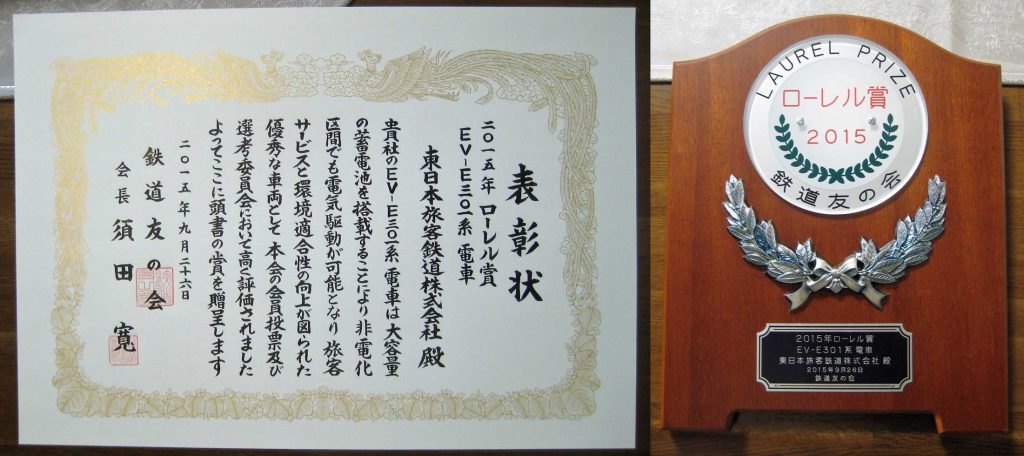 表彰状
二〇一五年 ローレル賞
EV-E三〇一系 電車
東日本旅客鉄道株式会社 殿
貴社のEV-E三〇一系 電車は 大容量
の蓄電池を搭載することにより 非電化
区間でも電気駆動が可能となり 旅客
サービスと環境適合性の向上が図られた
優秀な車両として 本会の会員投票及び
選考委員会において高く評価されました
よってここに頭書の賞を贈呈します
二〇一五年九月二十六日
鉄道友の会
会長 須田 寬
LAUREL PRIZE
ローレル賞
2015
鉄道友の会
2015年ローレル賞
EV-E301系電車
東日本旅客鉄道株式会社 殿
2015年9月26日
鉄道友の会